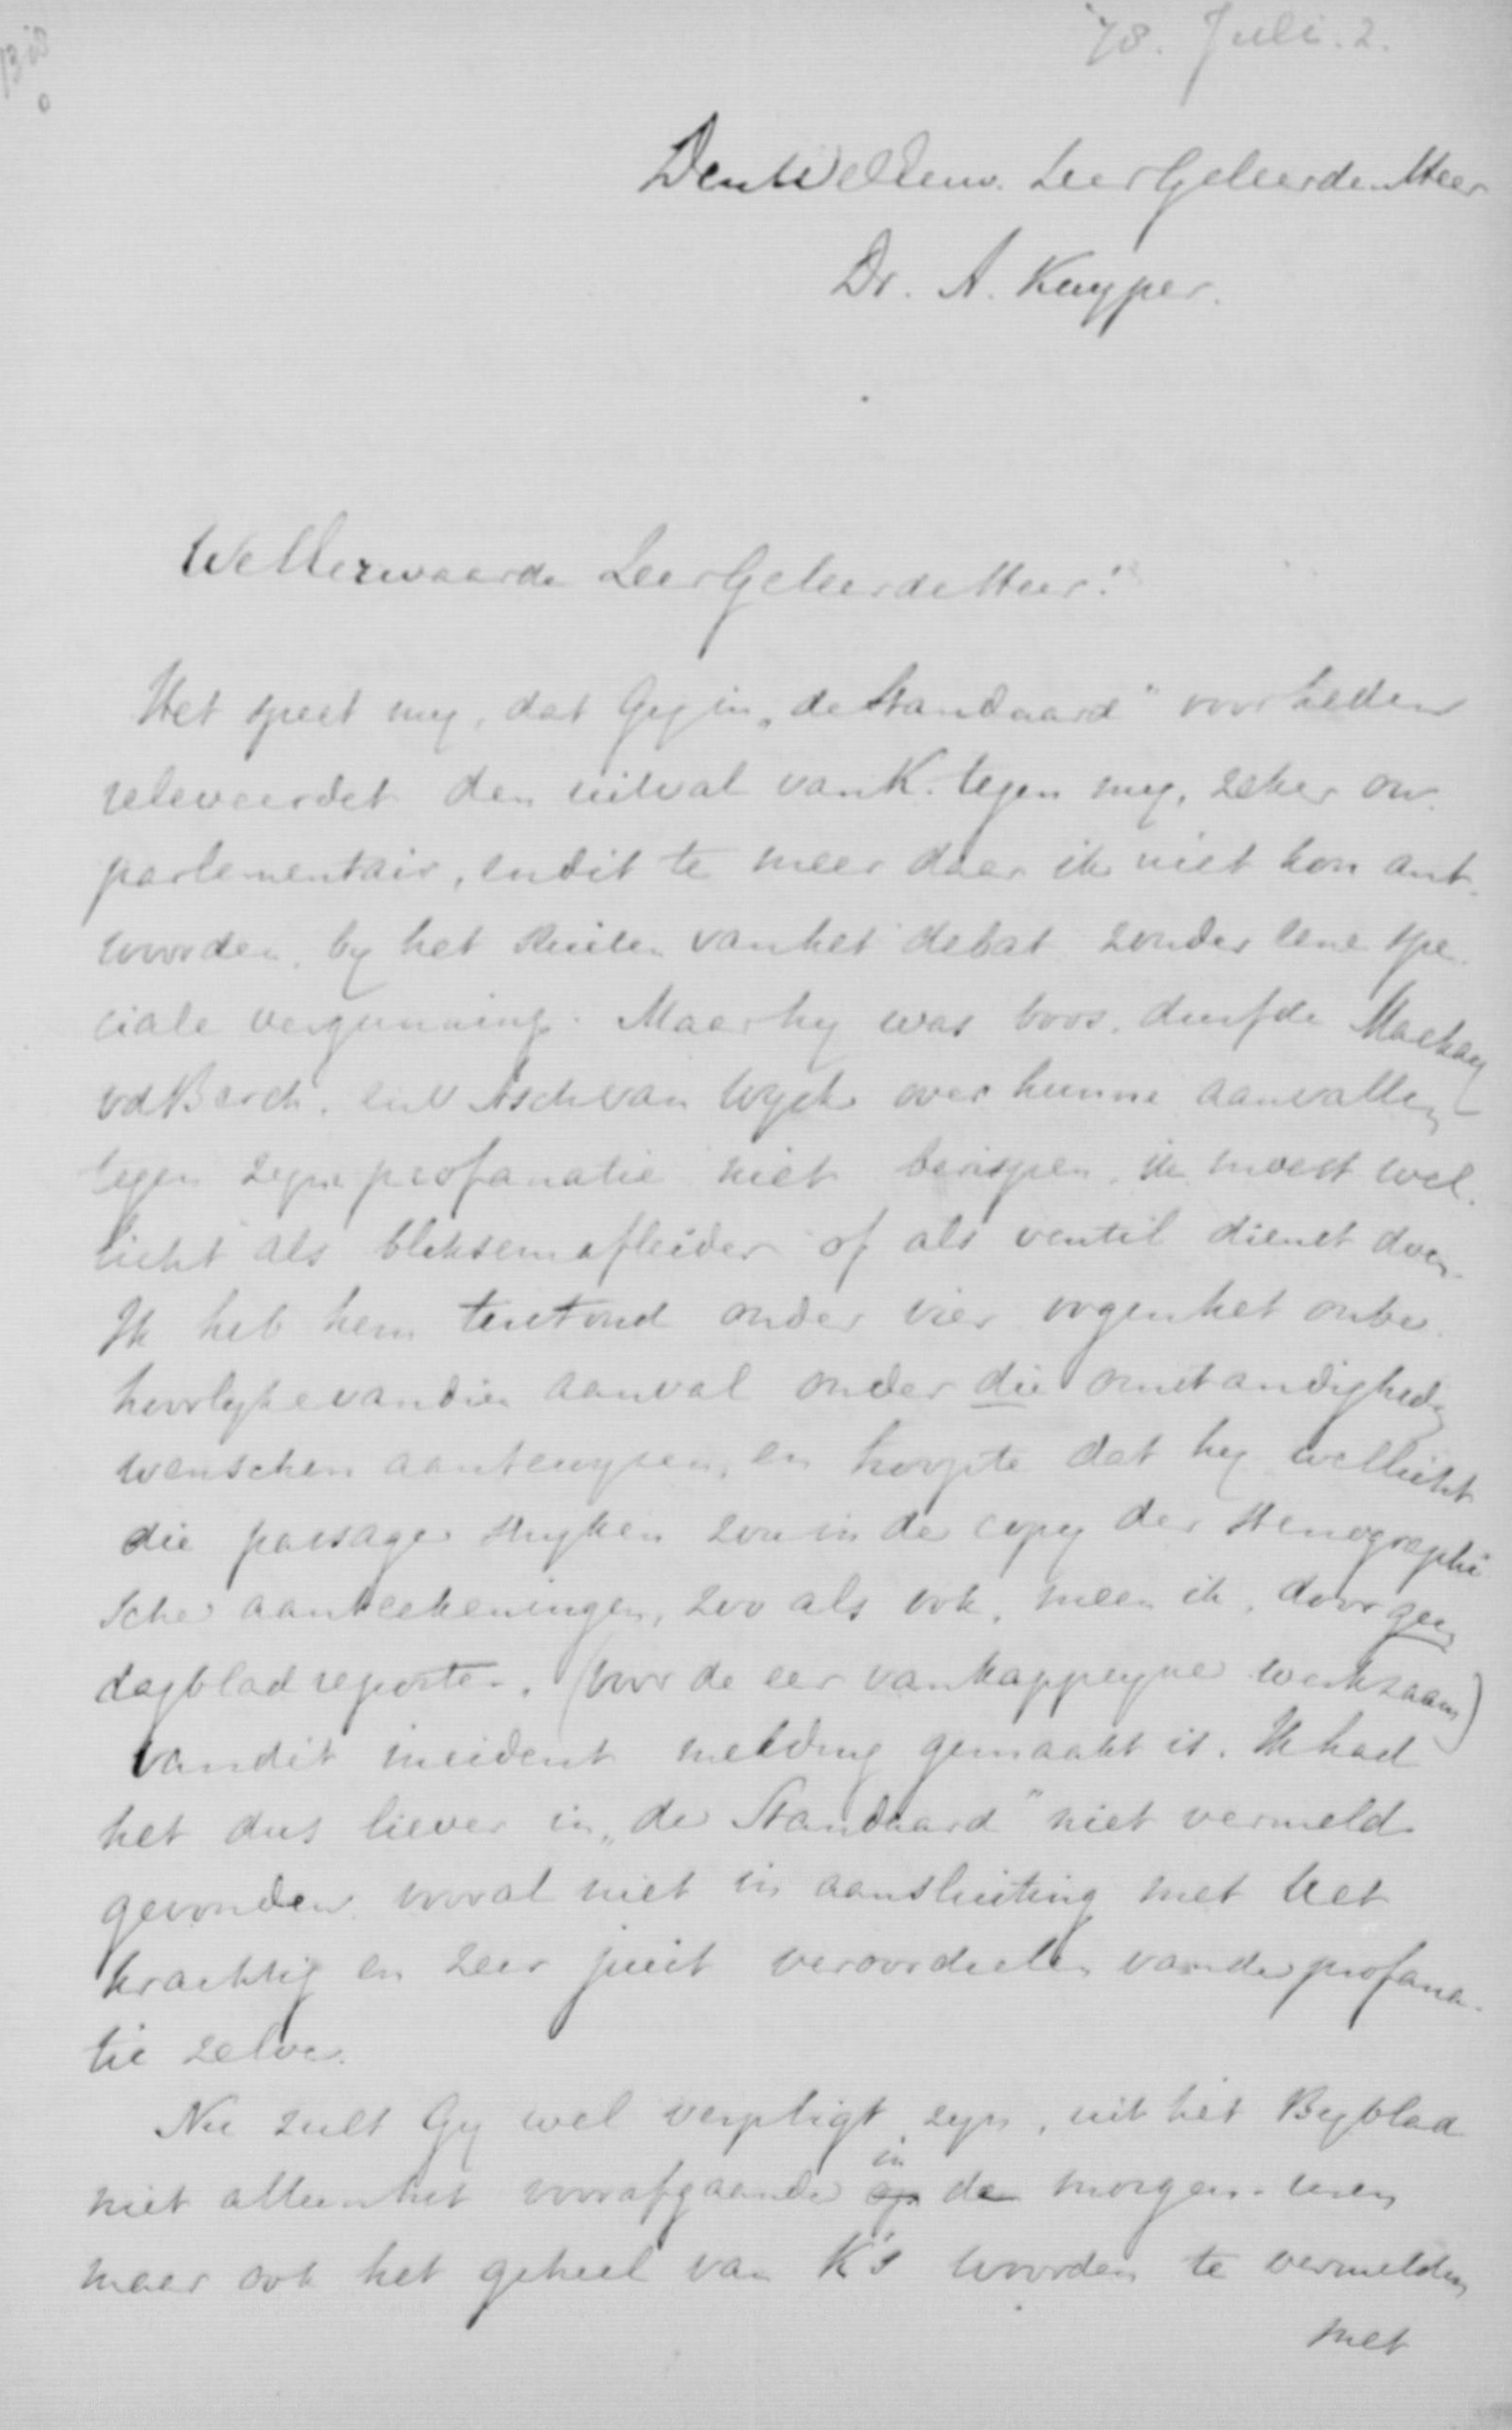 '78. Juli. 2.
Den WelEerw. ZeerGeleerden Heer
Dr. A. Kuyper.
WelEerwaarde ZeerGeleerde Heer!
Het speet my, dat Gy in „de Standaard" voor heden
releveerdet den uitval van K. tegen my, zeker on-
parlementair, en dit te meer daar ik niet kon ant-
woorden, by het sluiten van het debat zonder eene spe-
ciale vergunning. Maar hy was boos, durfde Mackay
vdBerch, en v Asch van Wyck over hunne aanvallen
tegen zyne profanatie niet berispen, ik moest wel-
licht als bliksemafleider of als ventil dienst doen.
Ik heb hem terstond onder vier oogen het onbe-
hoorlyke van dien aanval onder die omstandigheden
wenschen aantewyzen, en hoopte dat hy wellicht
die passage stryken zou in de copy der stenographi
sche aanteekeningen, zoo als ook, meen ik, door geen
dagblad reporter, (voor de eer van Kappeyne werkzaam)
van dit incident melding gemaakt is. Ik had
het dus liever in „de Standaard" niet vermeld
gevonden vooral niet in aansluiting met het
krachtig en zeer juist veroordeelen van de profana-
tie zelve.
Nu zult Gy wel verpligt zyn, uit het Byblad
niet alleen het voorafgaande in op de morgen-uren
maar ook het geheel van K's woorden te vermelden
met